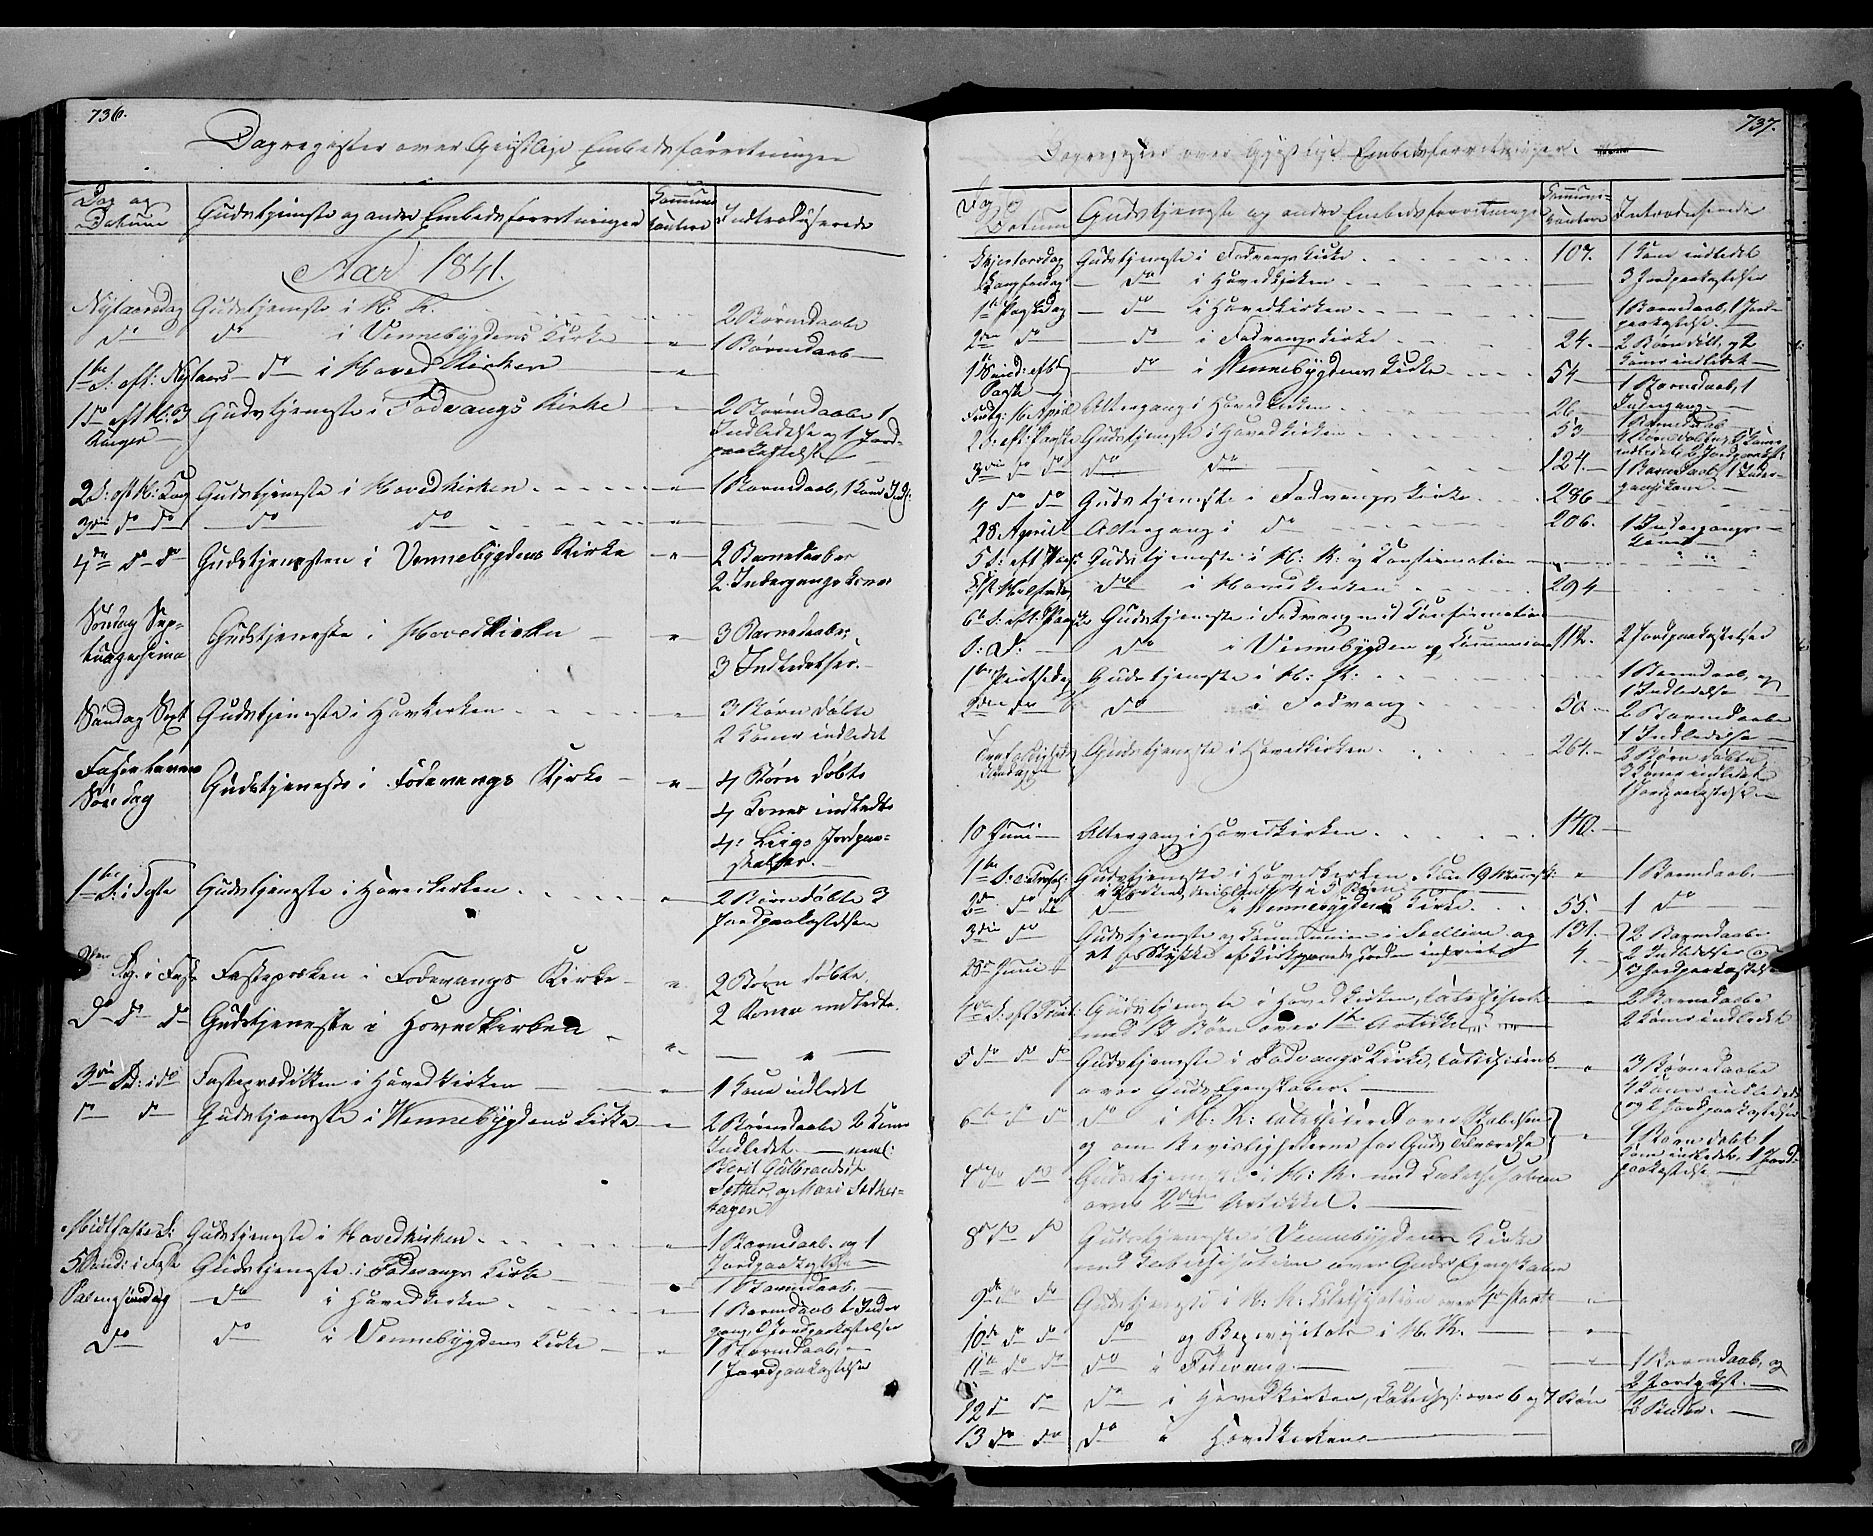 736.
Dagregister over Geistlige Embedsforretninger
Dag og Datum | Gudstjeneste og andre Embedsforretninger | Communicantere | Introduserede
Aar 1841.
Nytaarsdag Gudstjeneste i H. K. 2 Børnedaabe
do do i Vennebygdens Kirke " 1 Børnedaab
1ste S: eft: Nytaars do i Hovedkirken "
1 S eft H: 3 Konger Gudstjeneste i Fodvangs Kirke " 2 Børnedaabe 1
Indledelse og 1 Jord-
paakastelse
2 S: eft H: Kong Gudstjeneste i Hovedkirken " 1 Barnedaab, 1 Kone Indl:
3die do do do do "
4de do do Gudstjenesten i Vennebygdens Kirke " 2 Barnedaaber
2 Indgangskoner
Søndag Sep-
tuagesima Gudstjeneste i Hovedkirken " 3 Barnedaaber,
3 Indledelser.
Søndag Sext Gudstjeneste i Hovkirken " 3 Børn døbte
2 Koner indledet
Fastelavns
Søndag Gudstjeneste i Fodevangs Kirke " 4 Børn døbte
4 Koner indledte
4 Liigs Jordpaa-
kastelser.
1ste S: i Faste Gudstjeneste i Hovedkirken " 2 Børn døbte 3
Jordpaakastelser
2den Sø: i Faste Fasteprøken i Fodevangs Kirke " 2 Børn døbte
2 Koner indledte.
do do do Gudstjeneste i Hovedkirken "
3die S: i do Fasteprædiken i Hovedkirken " 1 Kone indledet
do do Gudstjeneste i Vennebygdens Kirke " 2 Børnedaabe 2 Koner
Indledet. neml:
Berit Gulbrandsdt
Sæther, og Mari Sæther-
hagen
Midtfaste S: Gudstjeneste i Hovedkirken " 1 Barnedaab og 1
Jordpaakastelse
5 Sønd: i Faste Gudstjeneste i Fodvangs Kirke 1 Barnedaab
Palmesøndag do i Hovedkirken " 1 Barnedaab 1 Inder
gang, 2 Jordpaakastelser
do do i Vennebygdens Kirke " 1 Barnedaab,
1 Jordpaakastelse
737.
Dagregister over Geistlige Embedsforretninger.
Dag og Datum | Gudstjeneste og andre Embedsforretninger | Communicantere | Introduserede
Skjertorsdag Gudstjeneste i Fodvangs Kirke 107. 1 Kone indledet
Langfredag do i Hovedkirken 3 Jordpaakastelser
1ste Paaskedag do i Hovedkirken 1 Barnedaab, 1 Jord-
paakastelse.
2den do do i Fodvangs Kirke 24. 2 Børn døbt og 2
Koner indledet
1ste Sønd: eft
Paaske do i Vennebygdens Kirke 54 1 Barnedaab, 1
Indergang
Fredag 16 April Altergang i Hovedkirken 26 1 Barnedaab
2 S: eft: Paaske Gudstjeneste i Hovedkirken 53
3die do do do do 124. 1 Barnedaab, 1 Inder-
gangskone.
4 do do Gudstjeneste i Fodvangs Kirke 286
28 April Altergang i do 206. 1 Indergangs-
kone
5 S: eft Paaske Gudstjeneste i H: K: og Confirmation
do i Hovedkirken 294
6te S: eft: Paaske Gudstjeneste i Fodvang med Confirmation
do i Vennebygden og Communion 112. 2 Jordpaakastelser
1ste Pintsedag Gudstjeneste i H: K: 1 Barnedaab, og
1 Indledelse
2den do do i Fodvang 50. 2 Barnedaabe
1 Indledelse
Trefoldigheds
Søndagen Gudstjeneste i Hovedkirken 264. 2 Børn døbte
3 Koner indledet
1 Jordpaakastelse
10 Juni Altergang i Hovedkirken 140.
1ste S: e: Trefol: Gudstjeneste i Hovedkirken. " 1 Barnedaab.
2den do do do i Vennebygdens Kirke 55. 1 do
3die do Gudstjeneste og Communion i Follien og 131. 2 Barnedaabe
28 Juni et Stykke af Kirkegaards Jorden indviet 4. 2 Indledelser og
3 Jordpaakastelser
4de S: eft Trinit: Gudstjeneste i Hovedkirken, Catechiserte " 2 Barnedaabe
med 13 Børn over 1ste Artikel 2 Koner indledet
5 do do do Gudstjeneste i Fodvangs Kirke, Catechiserte " 3 Børnedaabe
over Guds Egenskaber. 4 Koner indledede
og 2 Jordpaakastelser
6te do do do i H. K: Catechiserede over Skabelsen
og om Beviislighederne for Guds Tilværelse " 1 Barn døbt 1
Kone indledet, 1 Jord-
paakastelse
7 do do Gudstjeneste i H: K: med Catechisation
over 2den Artikkel.
8 do do Gudstjeneste i Vennebygdens Kirke
med Catechisation over Guds Egenskaber
9de do do Gudstjeneste i H: K: Catechisation over 1ste Parte "
10de do do do og Bispevisitats i H. K. "
11te do do do i Fodevang " 1 Barnedaab, og
2 Jordpakst.
12 do do do i Hovedkirken, Catechis: over 6 og 7 Bøn 2 Børn.
13 do do do i Hovedkirken